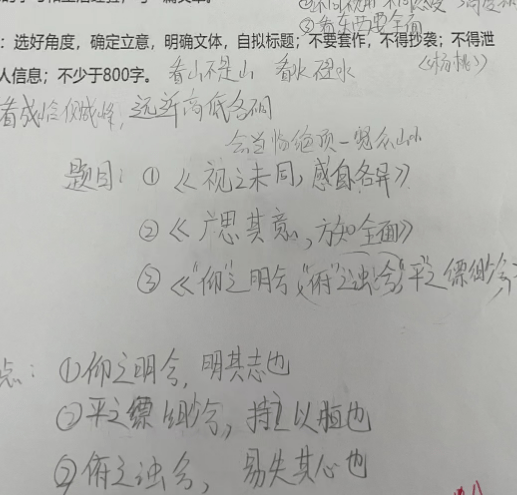 ③看东西要全面
：选好角度，确定立意，明确文体，自拟标题；不要套作，不得抄袭；不得泄
人信息；不少于800字。 看山不是山 看水 水 《杨桃》
看成岭侧成峰，远近高低各不同
会当临绝顶一览众山小
题目：①《视之未同，感自各异》
②《广思其意，方知全面》
③《“仰”之明兮，“俯”之浊兮，“平”之缥缈兮
点：①仰之明兮，明其志也
②平之缥缈兮，持之以恒也
③俯之浊兮，易失其心也